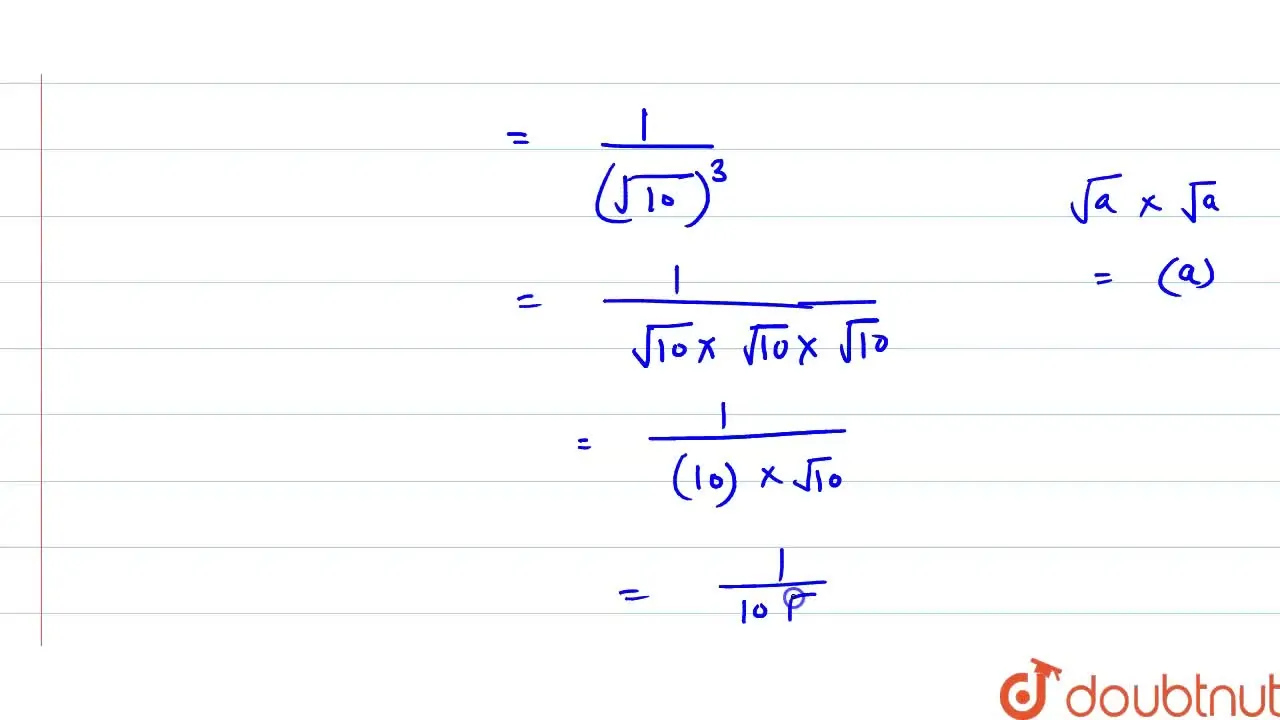 = 1/(√10)³
√a × √a
= (a)
= 1/(√10 × √10 × √10)
= 1/((10) × √10)
= 1/(10 √
doubtnut